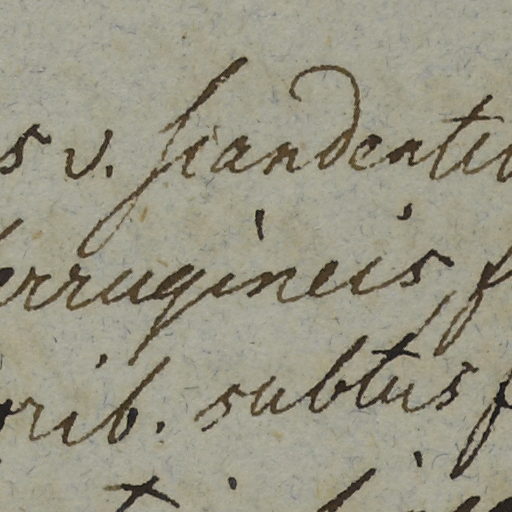 s v. scandentib
errugineis, f
rib. subtus f